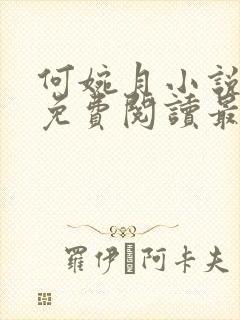 何婉月小說
免費閱讀最
羅伊 阿卡夫